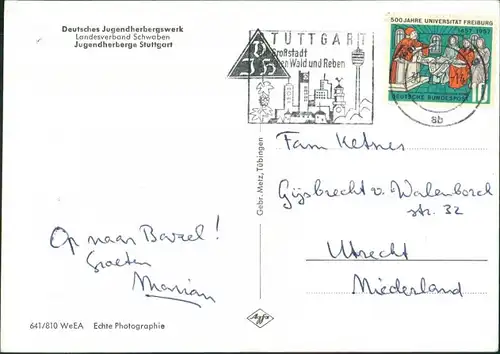 Deutsches Jugendherbergswerk
Landesverband Schwaben
Jugendherberge Stuttgart
STUTTGART
Großstadt
Wald und Reben
500 JAHRE UNIVERSITÄT FREIBURG
1457 1957
DEUTSCHE BUNDESPOST
10
ab
Fam Ketner
Gijsbrecht v. Walenborch
str. 32
Utrecht
Niederland
Op naar Bazel!
Groeten
Marian
Gebr. Metz, Tübingen
641/810 WeEA Echte Photographie
Agfa